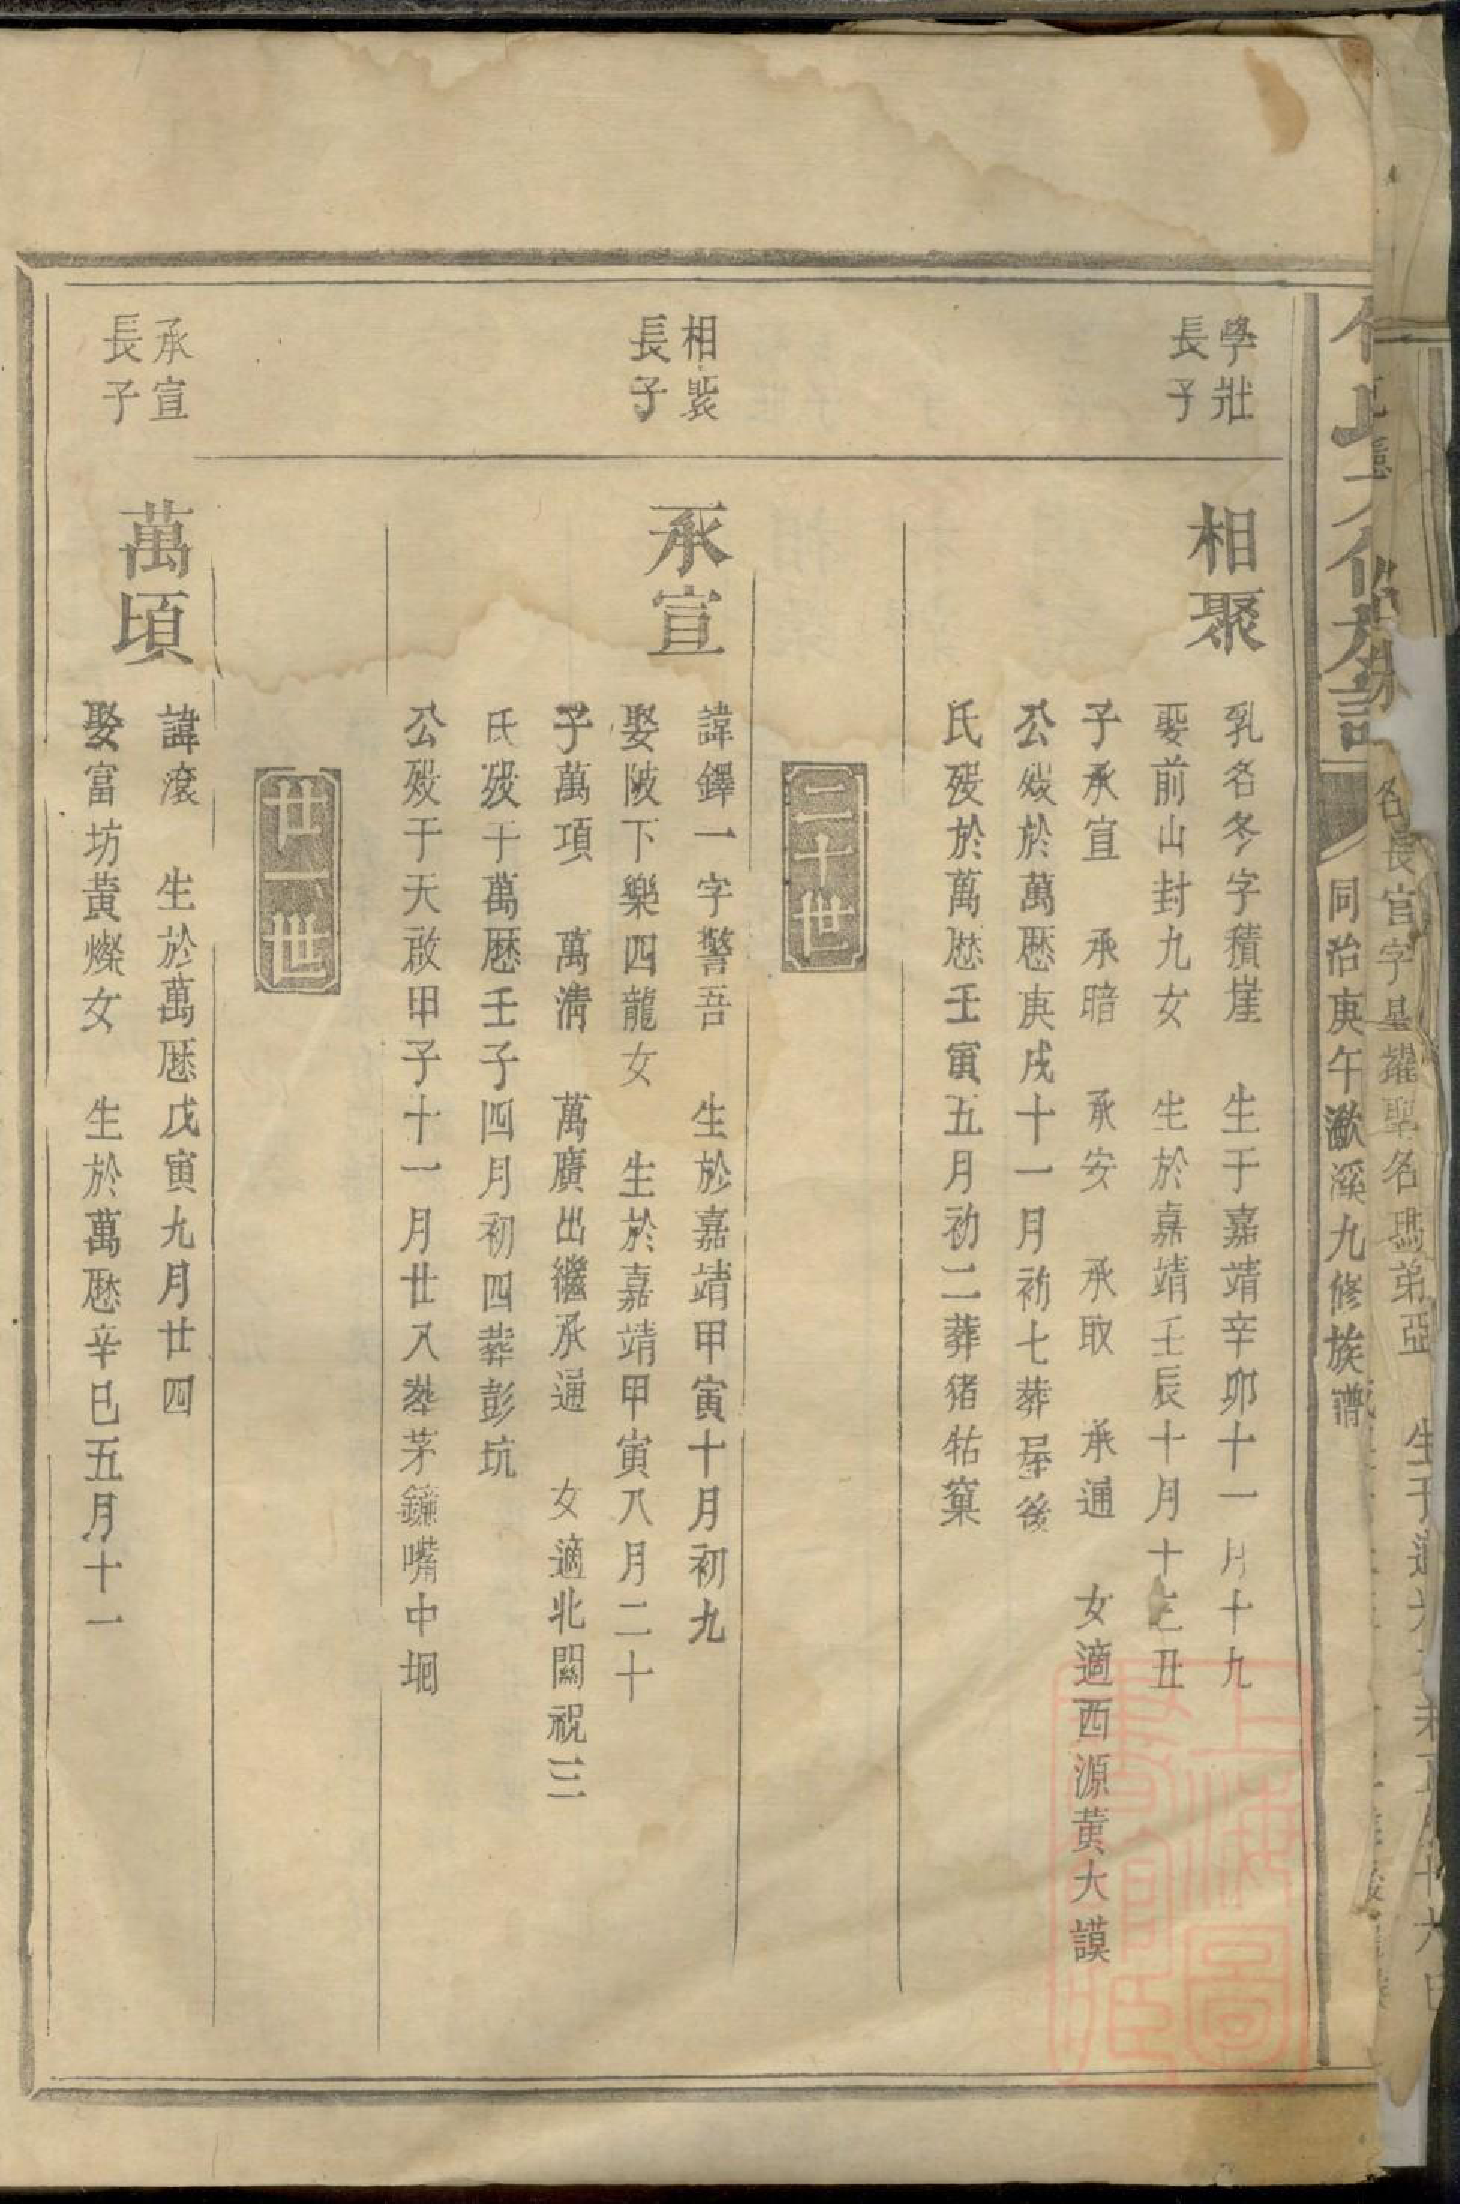 同治庚午漖溪九修族譜
學壯
長子
相聚
乳名冬字積崖 生于嘉靖辛卯十一月十九
娶前山封九女 生於嘉靖壬辰十月十七丑
子承宣 承暗 承安 承取 承通 女適西源黄大謨
公殁於萬厯庚戌十一月初七葬屋後
氏殁於萬厯壬寅五月初二葬猪牯窠
二十世
相聚
長子
承宣
諱鐸一字警吾 生於嘉靖甲寅十月初九
娶陂下樂四龍女 生於嘉靖甲寅八月二十
子萬項 萬淸 萬廣出繼承通 女適北關祝三
氏殁于萬厯壬子四月初四葬彭坑
公殁于天啟甲子十一月廿八塟茅鐮嘴中堌
廿一世
承宣
長子
萬頃
諱滾 生於萬厯戊寅九月廿四
娶富坊黄燦女 生於萬厯辛巳五月十一
名長官字基擢聖名瑪弟亞
上海圖書館藏